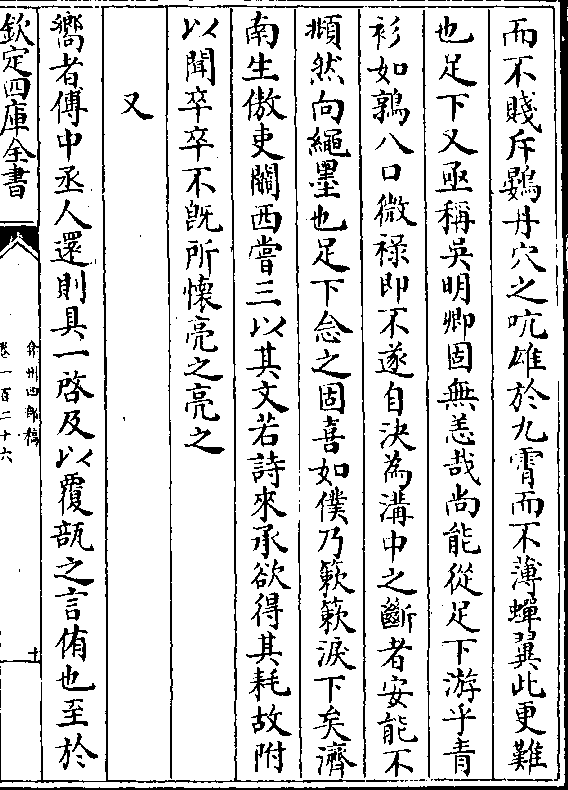 而不賤斥鷃丹穴之吭雄於九霄而不薄蟬翼此更難
也足下又亟稱吳明卿固無恙哉尚能從足下游乎青
衫如鶉八口微禄即不遂自決為溝中之斷者安能不
頫然向繩墨也足下念之固喜如僕乃簌簌淚下矣濟
南生傲吏關西嘗三以其文若詩來承欲得其耗故附
以聞卒卒不旣所懷亮之亮之
又
嚮者傅中丞人還則具一啓及以覆瓿之言侑也至於
欽定四庫全書
弇州四部稿
卷一百二十六
十